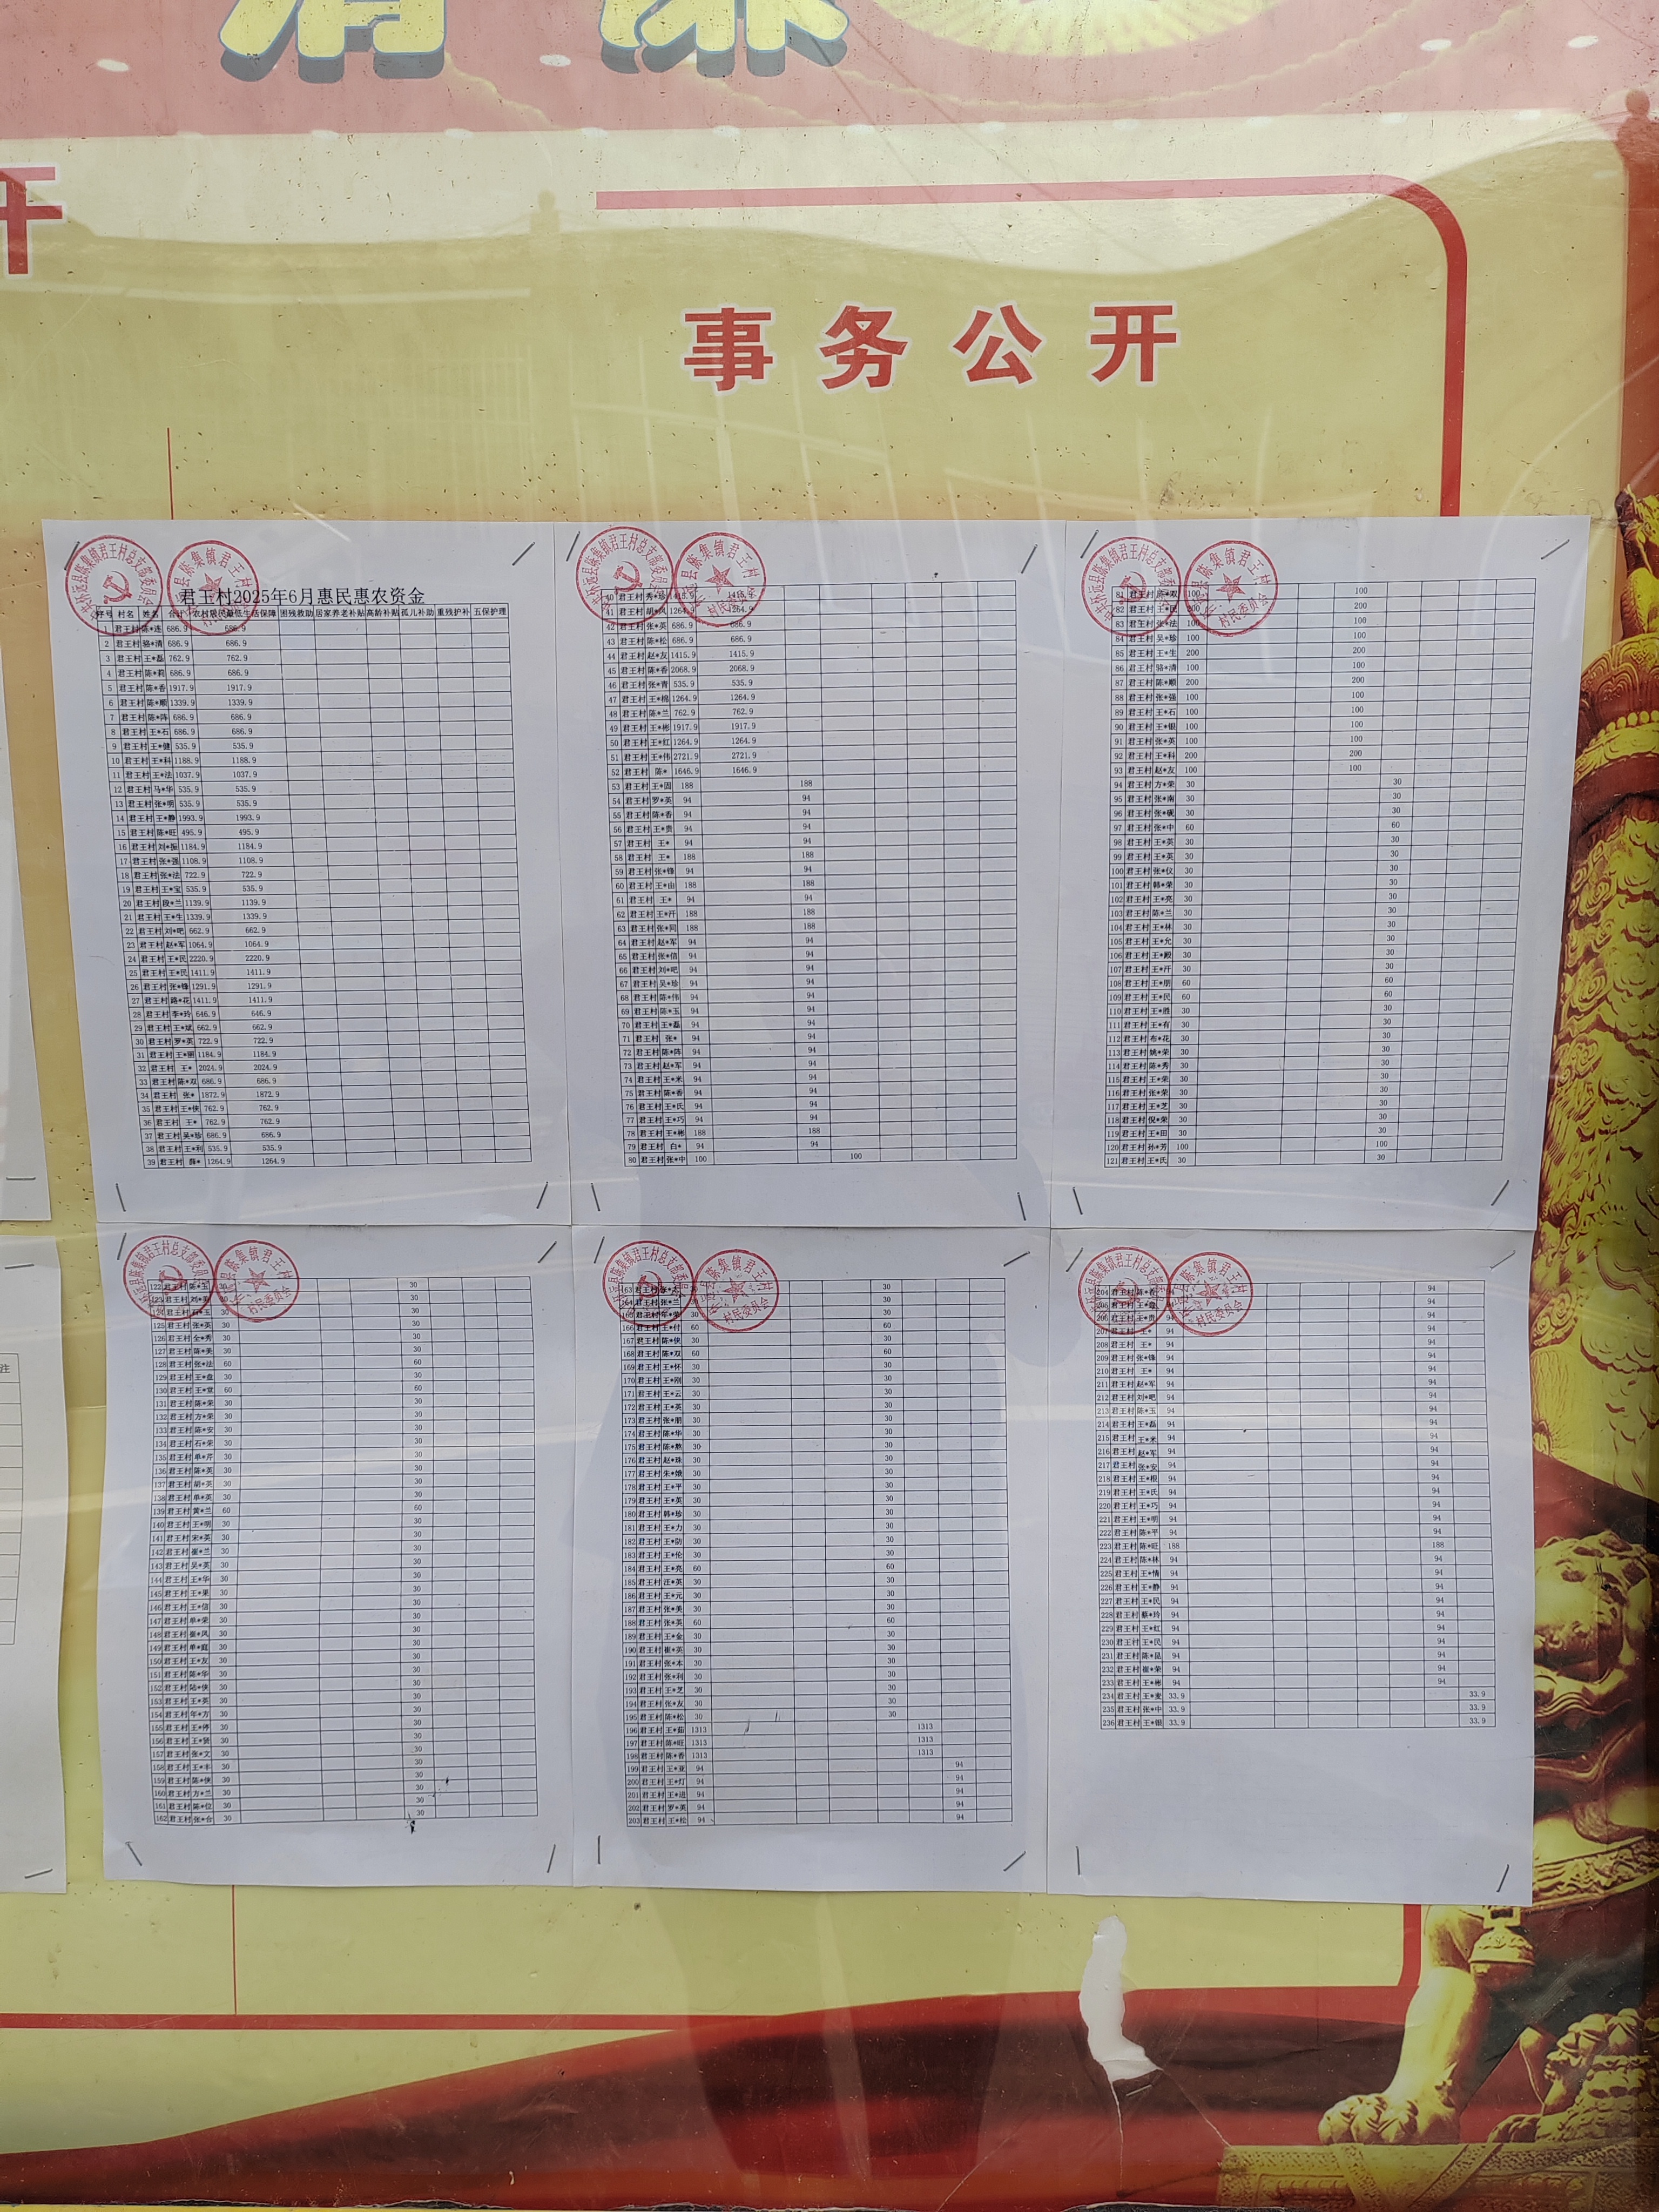 事务公开
君王村2025年6月惠民惠农资金
序号 村名 姓名 合计 农村居民最低生活保障 困残救助 居家养老补贴 高龄补贴 孤儿补助 重残护补 五保护理
1 君王村 陈*连 686.9 686.9
2 君王村 骆*清 686.9 686.9
3 君王村 王*磊 762.9 762.9
4 君王村 陈*莉 686.9 686.9
5 君王村 陈*香 1917.9 1917.9
6 君王村 陈*顺 1339.9 1339.9
7 君王村 陈*阵 686.9 686.9
8 君王村 王*石 686.9 686.9
9 君王村 王*健 535.9 535.9
10 君王村 王*科 1188.9 1188.9
11 君王村 王*法 1037.9 1037.9
12 君王村 马*华 535.9 535.9
13 君王村 张*明 535.9 535.9
14 君王村 王*静 1993.9 1993.9
15 君王村 陈*旺 495.9 495.9
16 君王村 刘*振 1184.9 1184.9
17 君王村 张*强 1108.9 1108.9
18 君王村 张*法 722.9 722.9
19 君王村 王*宝 535.9 535.9
20 君王村 段*兰 1139.9 1139.9
21 君王村 王*生 1339.9 1339.9
22 君王村 刘*吧 662.9 662.9
23 君王村 赵*军 1064.9 1064.9
24 君王村 王*民 2220.9 2220.9
25 君王村 王*民 1411.9 1411.9
26 君王村 张*锋 1291.9 1291.9
27 君王村 路*花 1411.9 1411.9
28 君王村 李*玲 646.9 646.9
29 君王村 王*斌 662.9 662.9
30 君王村 罗*英 722.9 722.9
31 君王村 王*丽 1184.9 1184.9
32 君王村 王* 2024.9 2024.9
33 君王村 陈*双 686.9 686.9
34 君王村 张* 1872.9 1872.9
35 君王村 王*侠 762.9 762.9
36 君王村 王* 762.9 762.9
37 君王村 吴*珍 686.9 686.9
38 君王村 王*利 535.9 535.9
39 君王村 薛* 1264.9 1264.9
40 君王村 秀*珍 1415.9 1415.9
41 君王村 胡*风 1264.9 1264.9
42 君王村 张*英 686.9 686.9
43 君王村 陈*松 686.9 686.9
44 君王村 赵*友 1415.9 1415.9
45 君王村 陈*香 2068.9 2068.9
46 君王村 张*青 535.9 535.9
47 君王村 王*棉 1264.9 1264.9
48 君王村 陈*兰 762.9 762.9
49 君王村 王*彬 1917.9 1917.9
50 君王村 王*红 1264.9 1264.9
51 君王村 王*伟 2721.9 2721.9
52 君王村 陈* 1646.9 1646.9
53 君王村 王*固 188 188
54 君王村 罗*英 94 94
55 君王村 陈*香 94 94
56 君王村 王*贵 94 94
57 君王村 王* 94 94
58 君王村 王* 188 188
59 君王村 张*锋 94 94
60 君王村 王*由 188 188
61 君王村 王* 94 94
62 君王村 王*汗 188 188
63 君王村 张*同 188 188
64 君王村 赵*军 94 94
65 君王村 张*信 94 94
66 君王村 刘*吧 94 94
67 君王村 吴*珍 94 94
68 君王村 陈*伟 94 94
69 君王村 陈*玉 94 94
70 君王村 王*磊 94 94
71 君王村 张* 94 94
72 君王村 陈*阵 94 94
73 君王村 赵*军 94 94
74 君王村 王*米 94 94
75 君王村 陈*香 94 94
76 君王村 王*氏 94 94
77 君王村 王*巧 94 94
78 君王村 王*彬 188 188
79 君王村 白* 94 94
80 君王村 张*中 100 100
81 君王村 陈*双 100 100
82 君王村 王*民 200 200
83 君王村 张*法 100 100
84 君王村 吴*珍 100 100
85 君王村 王*生 200 200
86 君王村 骆*清 100 100
87 君王村 陈*顺 200 200
88 君王村 张*强 100 100
89 君王村 王*石 100 100
90 君王村 王*银 100 100
91 君王村 张*英 100 100
92 君王村 王*科 200 200
93 君王村 赵*友 100 100
94 君王村 方*荣 30 30
95 君王村 张*南 30 30
96 君王村 张*砚 30 30
97 君王村 张*中 60 60
98 君王村 王*英 30 30
99 君王村 王*英 30 30
100 君王村 张*仪 30 30
101 君王村 韩*荣 30 30
102 君王村 王*亮 30 30
103 君王村 陈*兰 30 30
104 君王村 王*林 30 30
105 君王村 王*允 30 30
106 君王村 王*殿 30 30
107 君王村 王*汗 30 30
108 君王村 王*朋 60 60
109 君王村 王*民 60 60
110 君王村 王*胜 30 30
111 君王村 王*有 30 30
112 君王村 布*花 30 30
113 君王村 姚*荣 30 30
114 君王村 陈*秀 30 30
115 君王村 王*荣 30 30
116 君王村 张*荣 30 30
117 君王村 王*芝 30 30
118 君王村 倪*荣 30 30
119 君王村 王*田 30 30
120 君王村 孙*芳 100 100
121 君王村 王*氏 30 30
122 君王村 陈*玉 30 30
123 君王村 刘*英 30 30
124 君王村 石*玉 30 30
125 君王村 张*英 30 30
126 君王村 全*秀 30 30
127 君王村 陈*美 30 30
128 君王村 张*法 60 60
129 君王村 王*盘 30 30
130 君王村 王*堂 60 60
131 君王村 陈*荣 30 30
132 君王村 方*荣 30 30
133 君王村 陈*安 30 30
134 君王村 石*荣 30 30
135 君王村 单*芹 30 30
136 君王村 陈*英 30 30
137 君王村 胡*英 30 30
138 君王村 单*英 30 30
139 君王村 黄*兰 60 60
140 君王村 王*明 30 30
141 君王村 宋*英 30 30
142 君王村 崔*兰 30 30
143 君王村 吴*英 30 30
144 君王村 王*华 30 30
145 君王村 王*果 30 30
146 君王村 王*信 30 30
147 君王村 单*荣 30 30
148 君王村 崔*风 30 30
149 君王村 单*庭 30 30
150 君王村 王*友 30 30
151 君王村 陈*华 30 30
152 君王村 陆*侠 30 30
153 君王村 王*英 30 30
154 君王村 年*方 30 30
155 君王村 王*停 30 30
156 君王村 王*贤 30 30
157 君王村 张*文 30 30
158 君王村 王*丰 30 30
159 君王村 陈*侠 30 30
160 君王村 方*兰 30 30
161 君王村 陈*位 30 30
162 君王村 张*合 30 30
163 君王村 30 30
164 君王村 张*兰 30 30
165 君王村 年*荣 30 30
166 君王村 王*付 60 60
167 君王村 陈*侠 30 30
168 君王村 陈*双 60 60
169 君王村 王*怀 30 30
170 君王村 王*刚 30 30
171 君王村 王*云 30 30
172 君王村 王*英 30 30
173 君王村 张*朋 30 30
174 君王村 陈*华 30 30
175 君王村 陈*熬 30 30
176 君王村 赵*珠 30 30
177 君王村 朱*娥 30 30
178 君王村 王*平 30 30
179 君王村 王*英 30 30
180 君王村 韩*珍 30 30
181 君王村 王*力 30 30
182 君王村 王*防 30 30
183 君王村 王*伦 30 30
184 君王村 王*亮 60 60
185 君王村 汪*英 30 30
186 君王村 王*元 30 30
187 君王村 张*美 30 30
188 君王村 张*英 60 60
189 君王村 王*金 30 30
190 君王村 崔*英 30 30
191 君王村 张*本 30 30
192 君王村 张*利 30 30
193 君王村 王*芝 30 30
194 君王村 张*友 30 30
195 君王村 陈*松 30 30
196 君王村 王*茹 1313 1313
197 君王村 陈*旺 1313 1313
198 君王村 陈*香 1313 1313
199 君王村 王*亚 94 94
200 君王村 王*灯 94 94
201 君王村 王*进 94 94
202 君王村 罗*英 94 94
203 君王村 王*松 94 94
204 君王村 陈*香 94 94
205 君王村 王* 94 94
206 君王村 王*贵 94 94
207 君王村 王* 94 94
208 君王村 王* 94 94
209 君王村 张*锋 94 94
210 君王村 王* 94 94
211 君王村 赵*军 94 94
212 君王村 刘*吧 94 94
213 君王村 陈*玉 94 94
214 君王村 王*磊 94 94
215 君王村 王*米 94 94
216 君王村 赵*军 94 94
217 君王村 张*安 94 94
218 君王村 王*根 94 94
219 君王村 王*氏 94 94
220 君王村 王*巧 94 94
221 君王村 王*明 94 94
222 君王村 陈*平 94 94
223 君王村 陈*旺 188 188
224 君王村 陈*林 94 94
225 君王村 王*情 94 94
226 君王村 王*静 94 94
227 君王村 王*民 94 94
228 君王村 蔡*玲 94 94
229 君王村 王*红 94 94
230 君王村 王*民 94 94
231 君王村 陈*昆 94 94
232 君王村 崔*荣 94 94
233 君王村 王*彬 94 94
234 君王村 王*麦 33.9 33.9
235 君王村 张*中 33.9 33.9
236 君王村 王*银 33.9 33.9